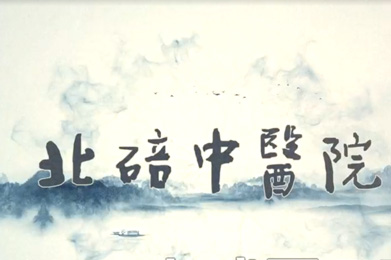 北碚中醫院